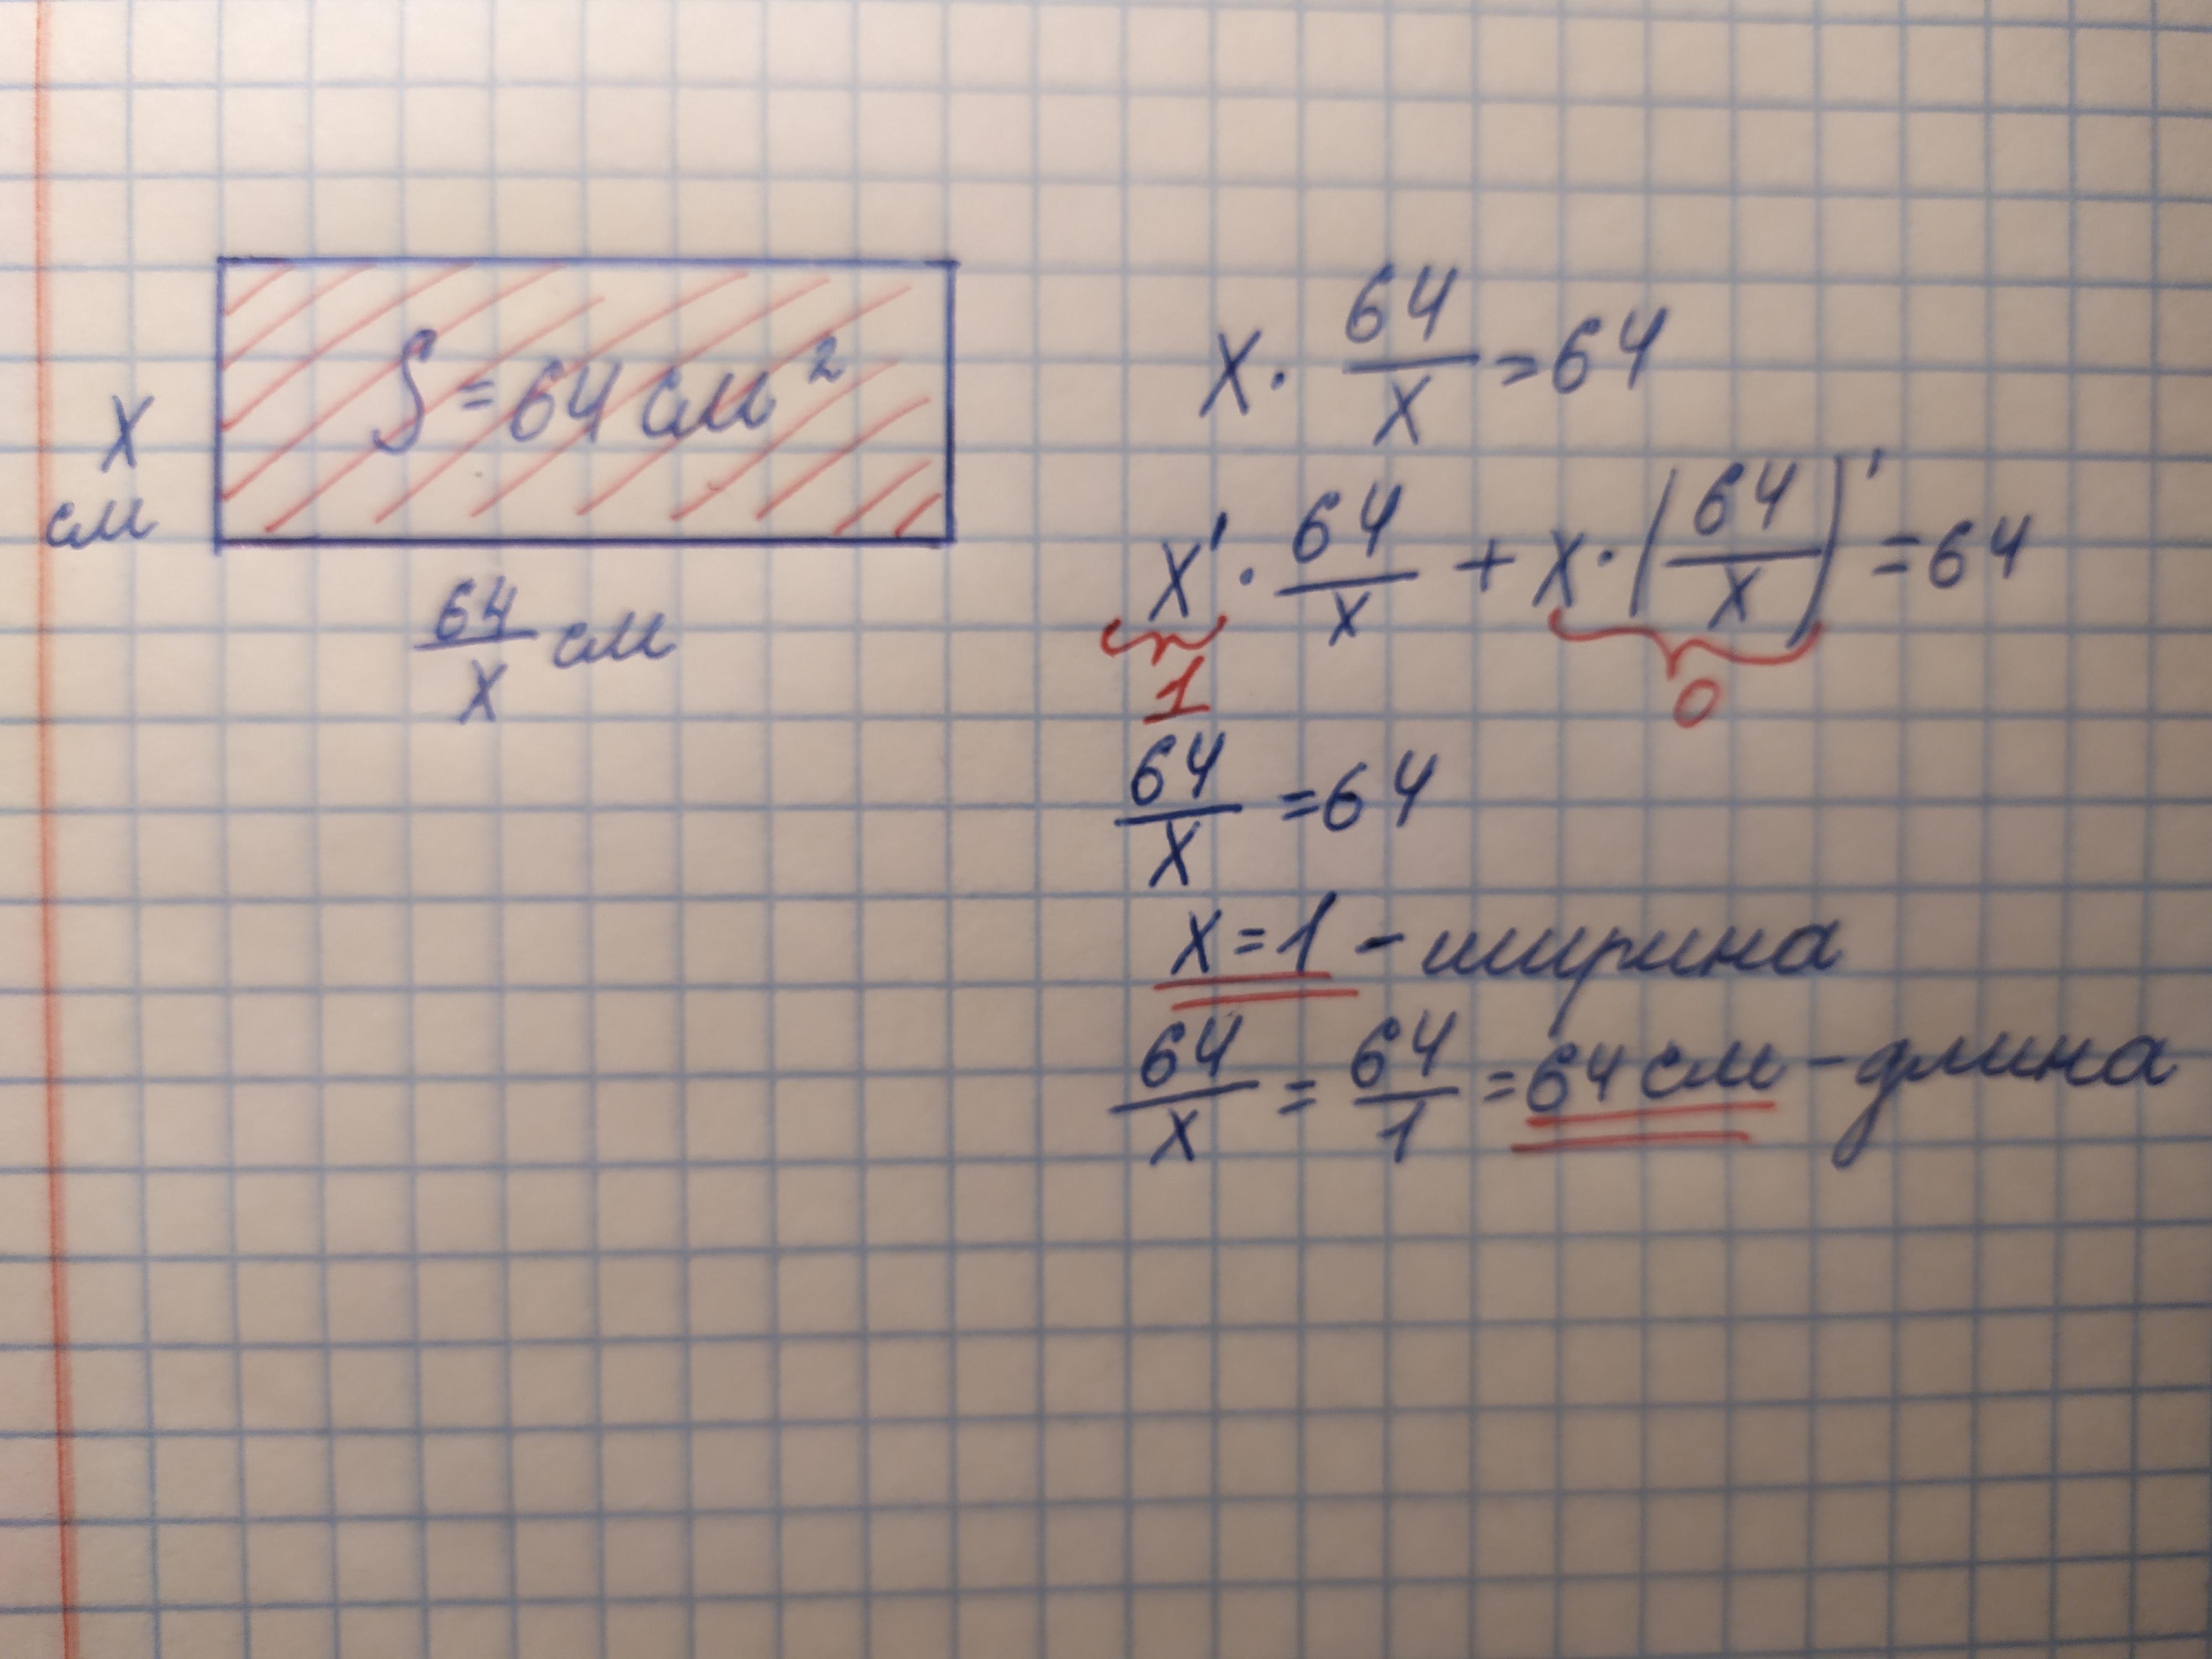 S = 64 см²
x
см
64/x см
x · 64/x = 64
x' · 64/x + x · (64/x)' = 64
1 0
64/x = 64
x = 1 – ширина
64/x = 64/1 = 64 см – длина